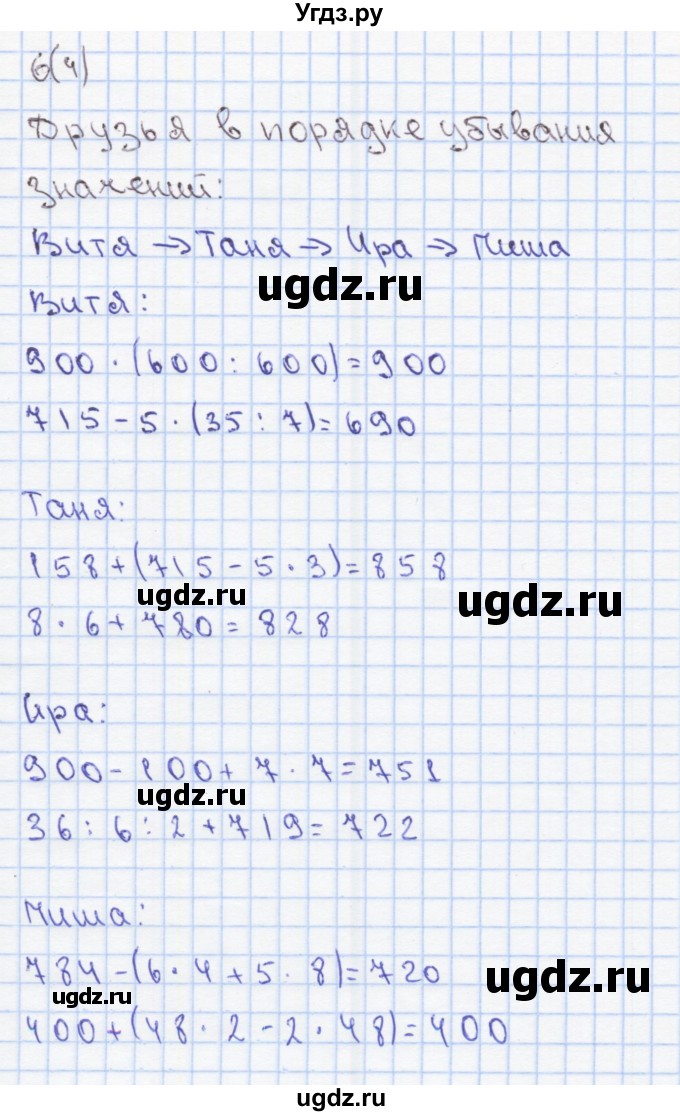 Угдз.ру
6(4)
Друзья в порядке убывания
значений:
Витя → Таня → Ира → Миша
ugdz.ru
Витя:
900 · (600 : 600) = 900
715 - 5 · (35 : 7) = 690
Таня:
158 + (715 - 5 · 3) = 858
ugdz.ru
ugdz.ru
8 · 6 + 780 = 828
Ира:
900 - 100 + 7 · 7 = 751
ugdz.ru
36 : 6 : 2 + 719 = 722
Миша:
784 - (6 · 4 + 5 · 8) = 720
ugdz.ru
ugdz.ru
400 + (48 · 2 - 2 · 48) = 400
ugdz.ru